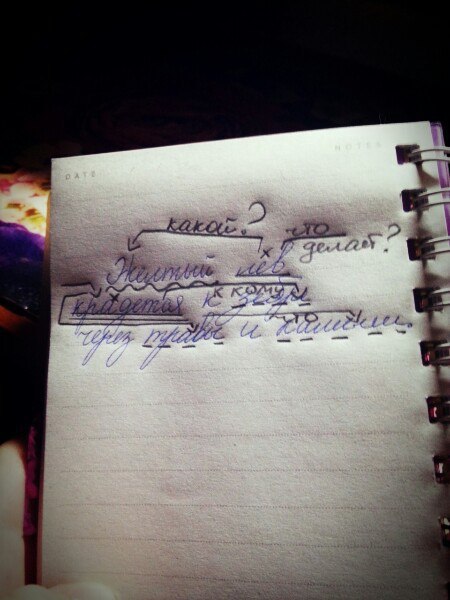 DATE
NOTES
какой? что
делает?
Желтый лев
к кому
крадется к зебре
что
через травы и камыши.